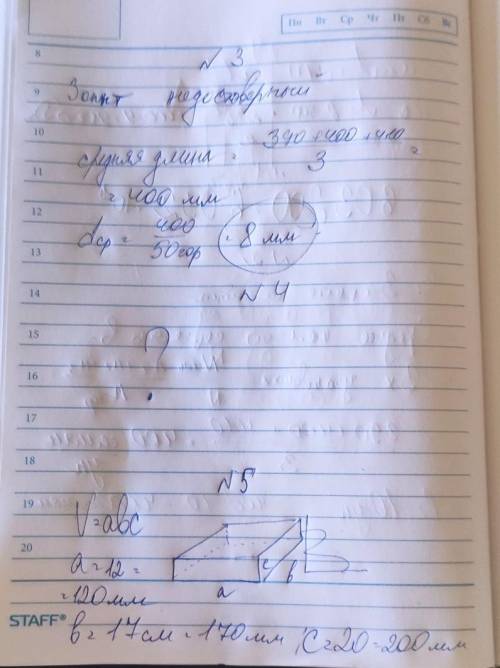 Пн Вт Ср Чт Пт Сб Вс
8
№ 3
9
3 опыт недостоверный
10
средняя длина = 390+400+410 / 3 =
11
= 400 мм
12
dср = 400 / 50гор = 8 мм
13
14
№ 4
15
?
16
17
18
№5
19
V=abc
20
a=12=
=120мм
a
c
b
STAFF®
b=17см=170мм, c=20=200мм